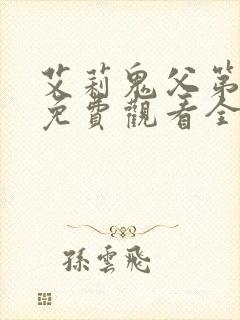 艾莉鬼父第
免費觀看全
孫雲飛